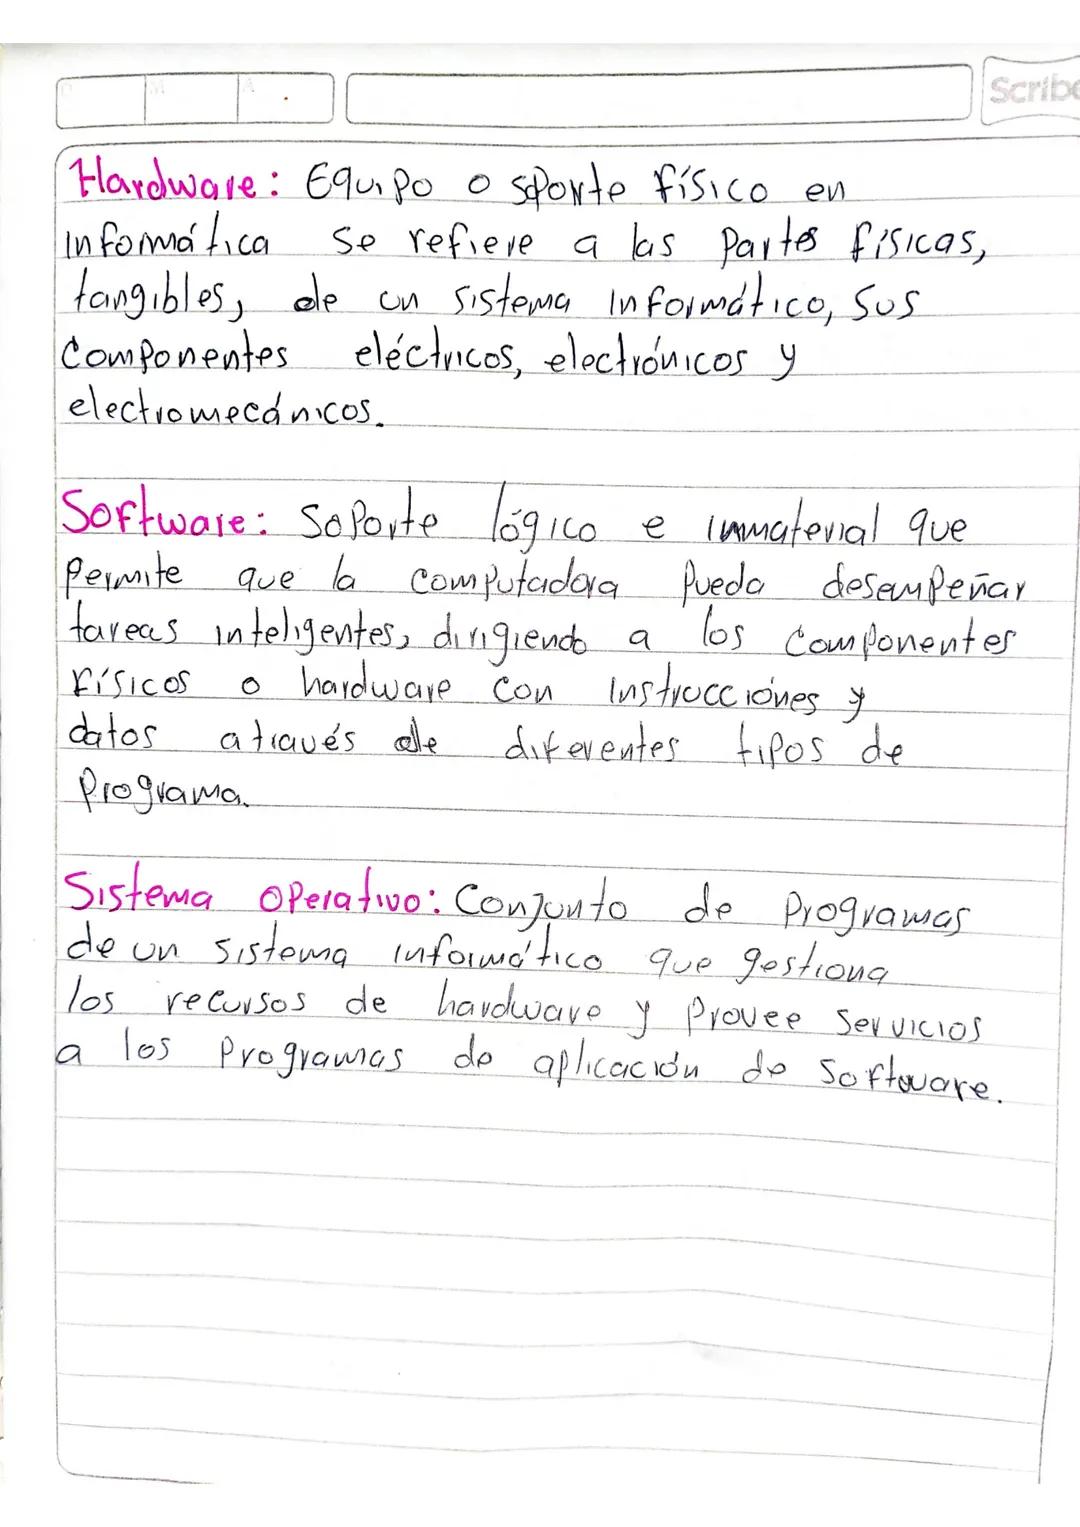 Scribe
Hardware: Equipo o soporte físico en
informática se refiere a las partes físicas,
tangibles, de un sistema informático, sus
componentes eléctricos, electrónicos y
electromecánicos.
Software: Soporte lógico e inmaterial que
permite que la computadora pueda desempeñar
tareas inteligentes, dirigiendo a los componentes
físicos o hardware con instrucciónes y
datos através de diferentes tipos de
programa.
Sistema operativo: Conjunto de programas
de un sistema informático que gestiona
los recursos de hardware y provee servicios
a los programas de aplicación de software.